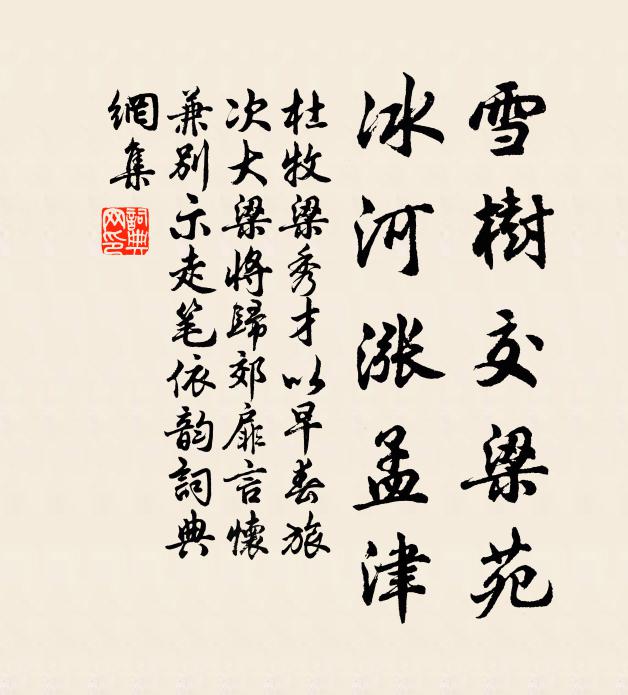 雪樹交梁苑
冰河漲孟津
杜牧梁秀才以早春旅
次大梁將歸郊扉言懷
兼別示走笔依韵詞典
網集
詞典網印